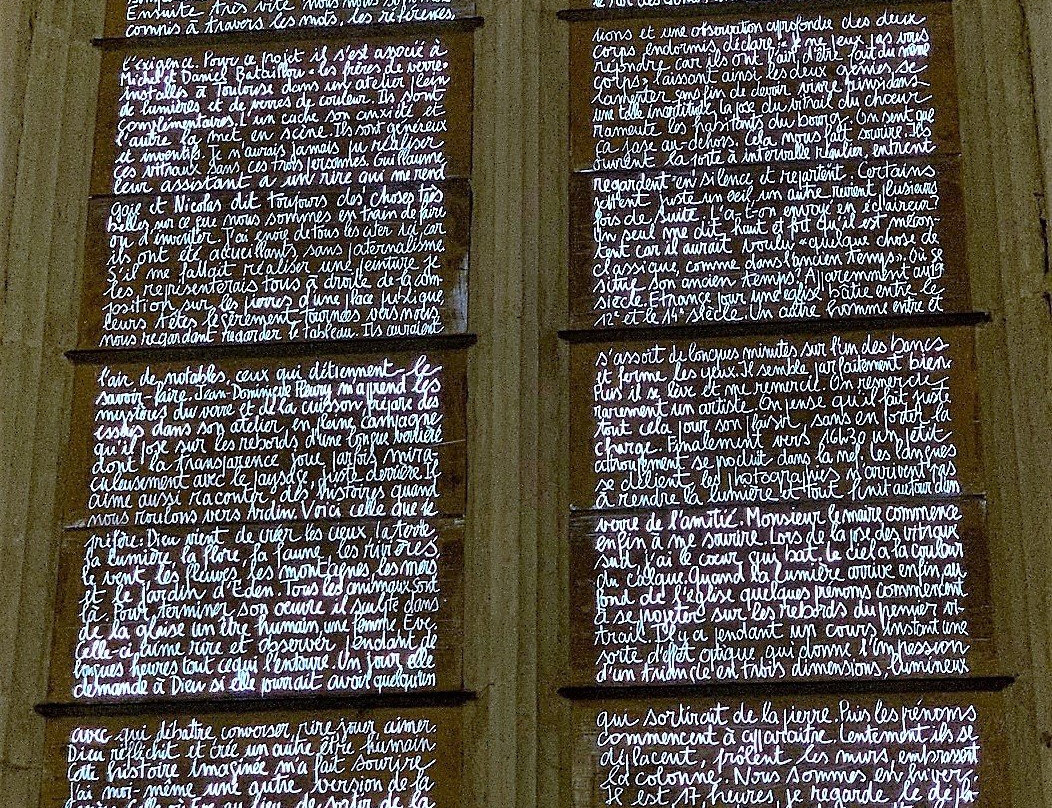 Ensuite très vite nous nous sommes
compris à travers les mots, les références,
l'exigence. Pour ce projet il s'est associé à
Michel et Daniel Bataillou : les frères de verre.
installés à Toulouse dans un atelier plein
de lumières et de verres de couleur. Ils sont
complémentaires. L'un cache son anxiété et
l'autre la met en scène. Ils sont généreux
et inventifs. Je n'aurais jamais pu réaliser
ces vitraux sans ces trois personnes. Guillaume
leur assistant a un rire qui me rend
gaie et Nicolas dit toujours des choses très
belles sur ce que nous sommes en train de faire
ou d'inventer. J'ai envie de tous les citer ici, car
ils ont été accueillants, sans paternalisme.
S'il me fallait réaliser une peinture je
les représenterais tous à droite de la com-
position sur les pierres d'une place publique,
leurs têtes légèrement tournées vers nous
nous regardant regarder le tableau. Ils auraient
l'air de notables, ceux qui détiennent le
savoir-faire. Jean-Dominique Fleury m'apprend les
mystères du verre et de la cuisson, prépare des
essais dans son atelier, en pleine campagne
qu'il pose sur les rebords d'une longue verrière
dont la transparence joue parfois mira-
culeusement avec le paysage, juste derrière. Il
aime aussi raconter, des histoires quand
nous roulons vers Ardin. Voici celle que je
préfère: Dieu vient de créer les cieux, la terre
la lumière, la flore, la faune, les rivières,
le vent, les fleuves, les montagnes les mers
et le jardin d'Eden. Tous les animaux sont
là. Pour terminer son œuvre il sculpte dans
de la glaise un être humain, une femme Eve.
Celle-ci aime rire et observer pendant de
longues heures tout ce qui l'entoure. Un jour, elle
demande à Dieu si elle pourrait avoir quelqu'un
avec qui débattre, converser, rire, jouer, aimer.
Dieu réfléchit et crée un autre être humain
Cette histoire imaginée m'a fait sourire
j'ai moi-même une autre version de la
au lieu de sortir de la
tions et une observation approfondie des deux
corps endormis, déclare: je ne peux pas vous
répondre car ils ont l'air d'être fait du même
corps, laissant ainsi les deux génies se
lamenter sans fin de devoir vivre ainsi dans
une telle incertitude. La pose du vitrail du chœur
rameute les habitants du bourg. On sent que
ça jase au-dehors. Cela nous fait sourire. Ils
ouvrent la porte à intervalle régulier, entrent
regardent en silence et repartent. Certains
jettent juste un œil, un autre revient plusieurs
fois de suite. L'a-t-on envoyé en éclaireur?
Un seul me dit haut et fort qu'il est mécon-
tent car il aurait voulu "quelque chose de
classique, comme dans l'ancien temps". Où se
situe son ancien temps? Apparemment au 19e
siècle. Etrange pour une église bâtie entre le
12e et le 14e siècle. Un autre homme entre et
s'assoit de longues minutes sur l'un des bancs
et ferme les yeux. Il semble parfaitement bien.
Puis il se lève et me remercie. On remercie
rarement un artiste. On pense qu'il fait juste
tout cela pour son plaisir, sans en porter la
charge. Finalement vers 16h30 un petit
attroupement se produit dans la nef. les langues
se délient, les photographies n'arrivent pas
à rendre la lumière et tout finit autour d'un
verre de l'amitié. Monsieur le maire commence
enfin à me sourire. Lors de la pose des vitraux
sud, j'ai le cœur qui bat, le ciel a la couleur
du calque. Quand la lumière arrive enfin, au
fond de l'église quelques prénoms commencent
à se projeter sur les rebords du premier vi-
trail. Il y a pendant un cours instant une
sorte d'effet optique, qui donne l'impression
d'un triangle en trois dimensions, lumineux
qui sortirait de la pierre. Puis les prénoms
commencent à apparaître, lentement ils se
déplacent, frôlent les murs, embrassent
la colonne. Nous sommes, en hiver.
Il est, 17, heures, je regarde, le déplo-